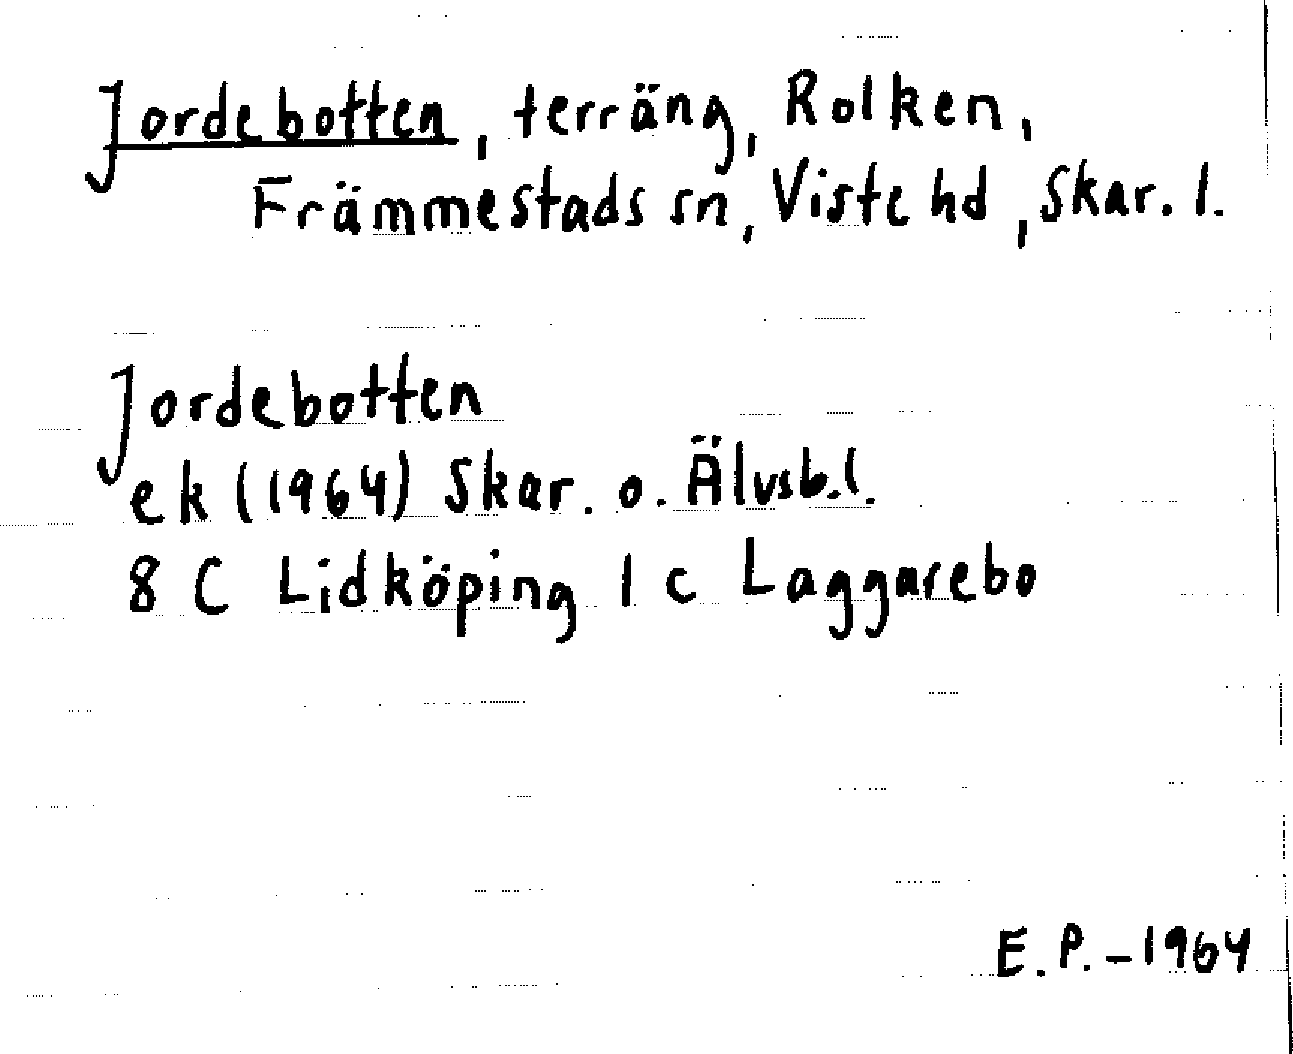 Jordebotten, terräng, Rolken,
Främmestads sn, Viste hd, Skar. l.
Jordebotten
ek (1964) Skar. o. Älvsb. l.
8 C Lidköping 1 c Laggarebo
E. P. - 1964